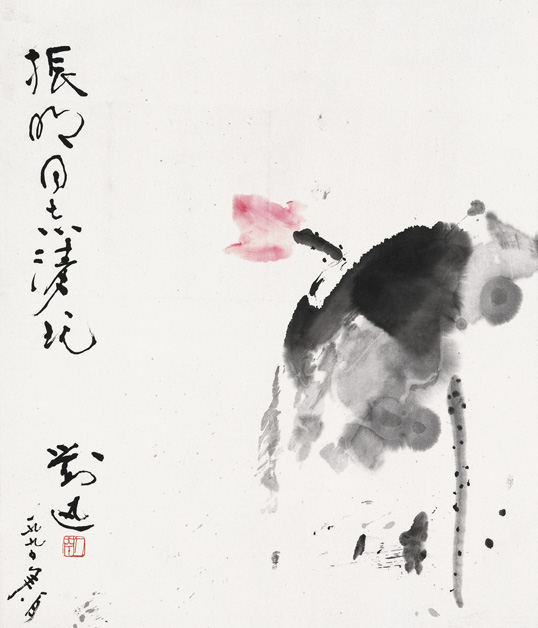 振明同志清玩
劉迅
一九九〇